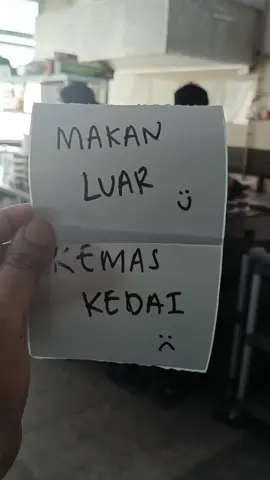 MAKAN
LUAR :)
KEMAS
KEDAI
:(